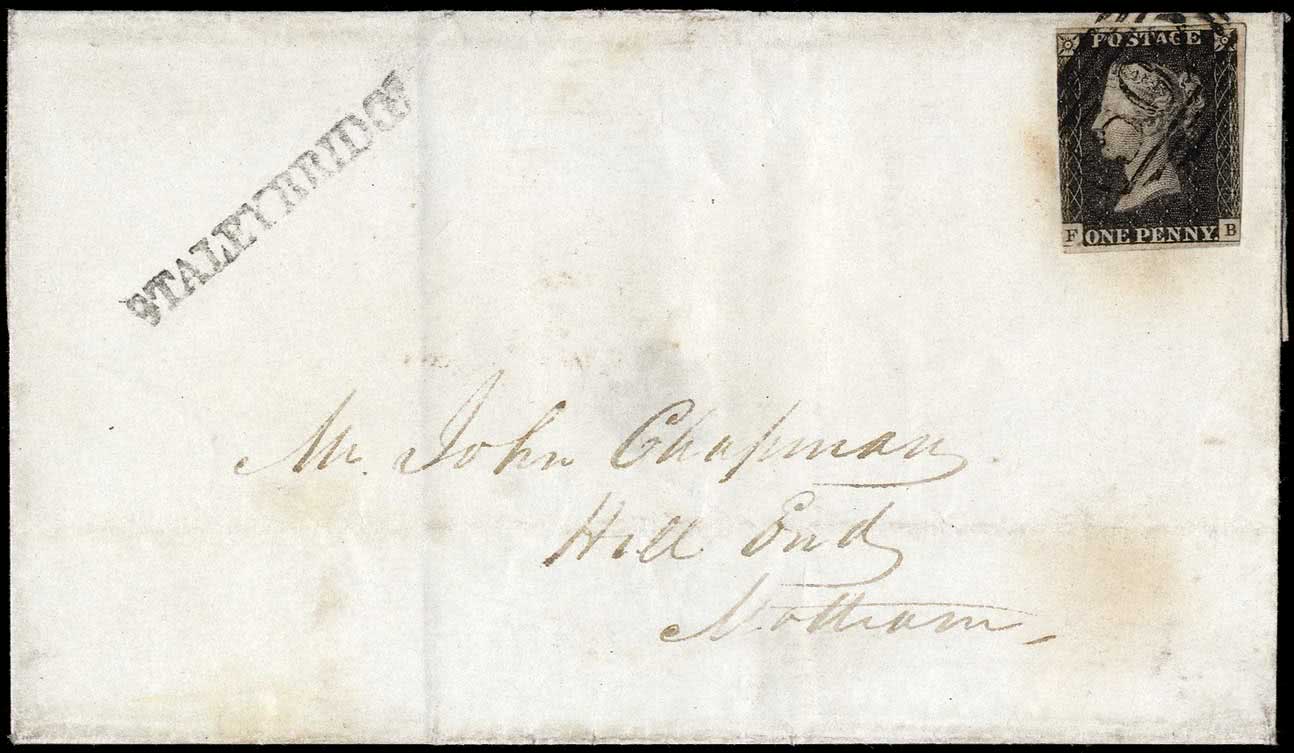 STALEYBRIDGE
POSTAGE
F ONE PENNY. B
Mr. John Chapman
Hill End
Mottram